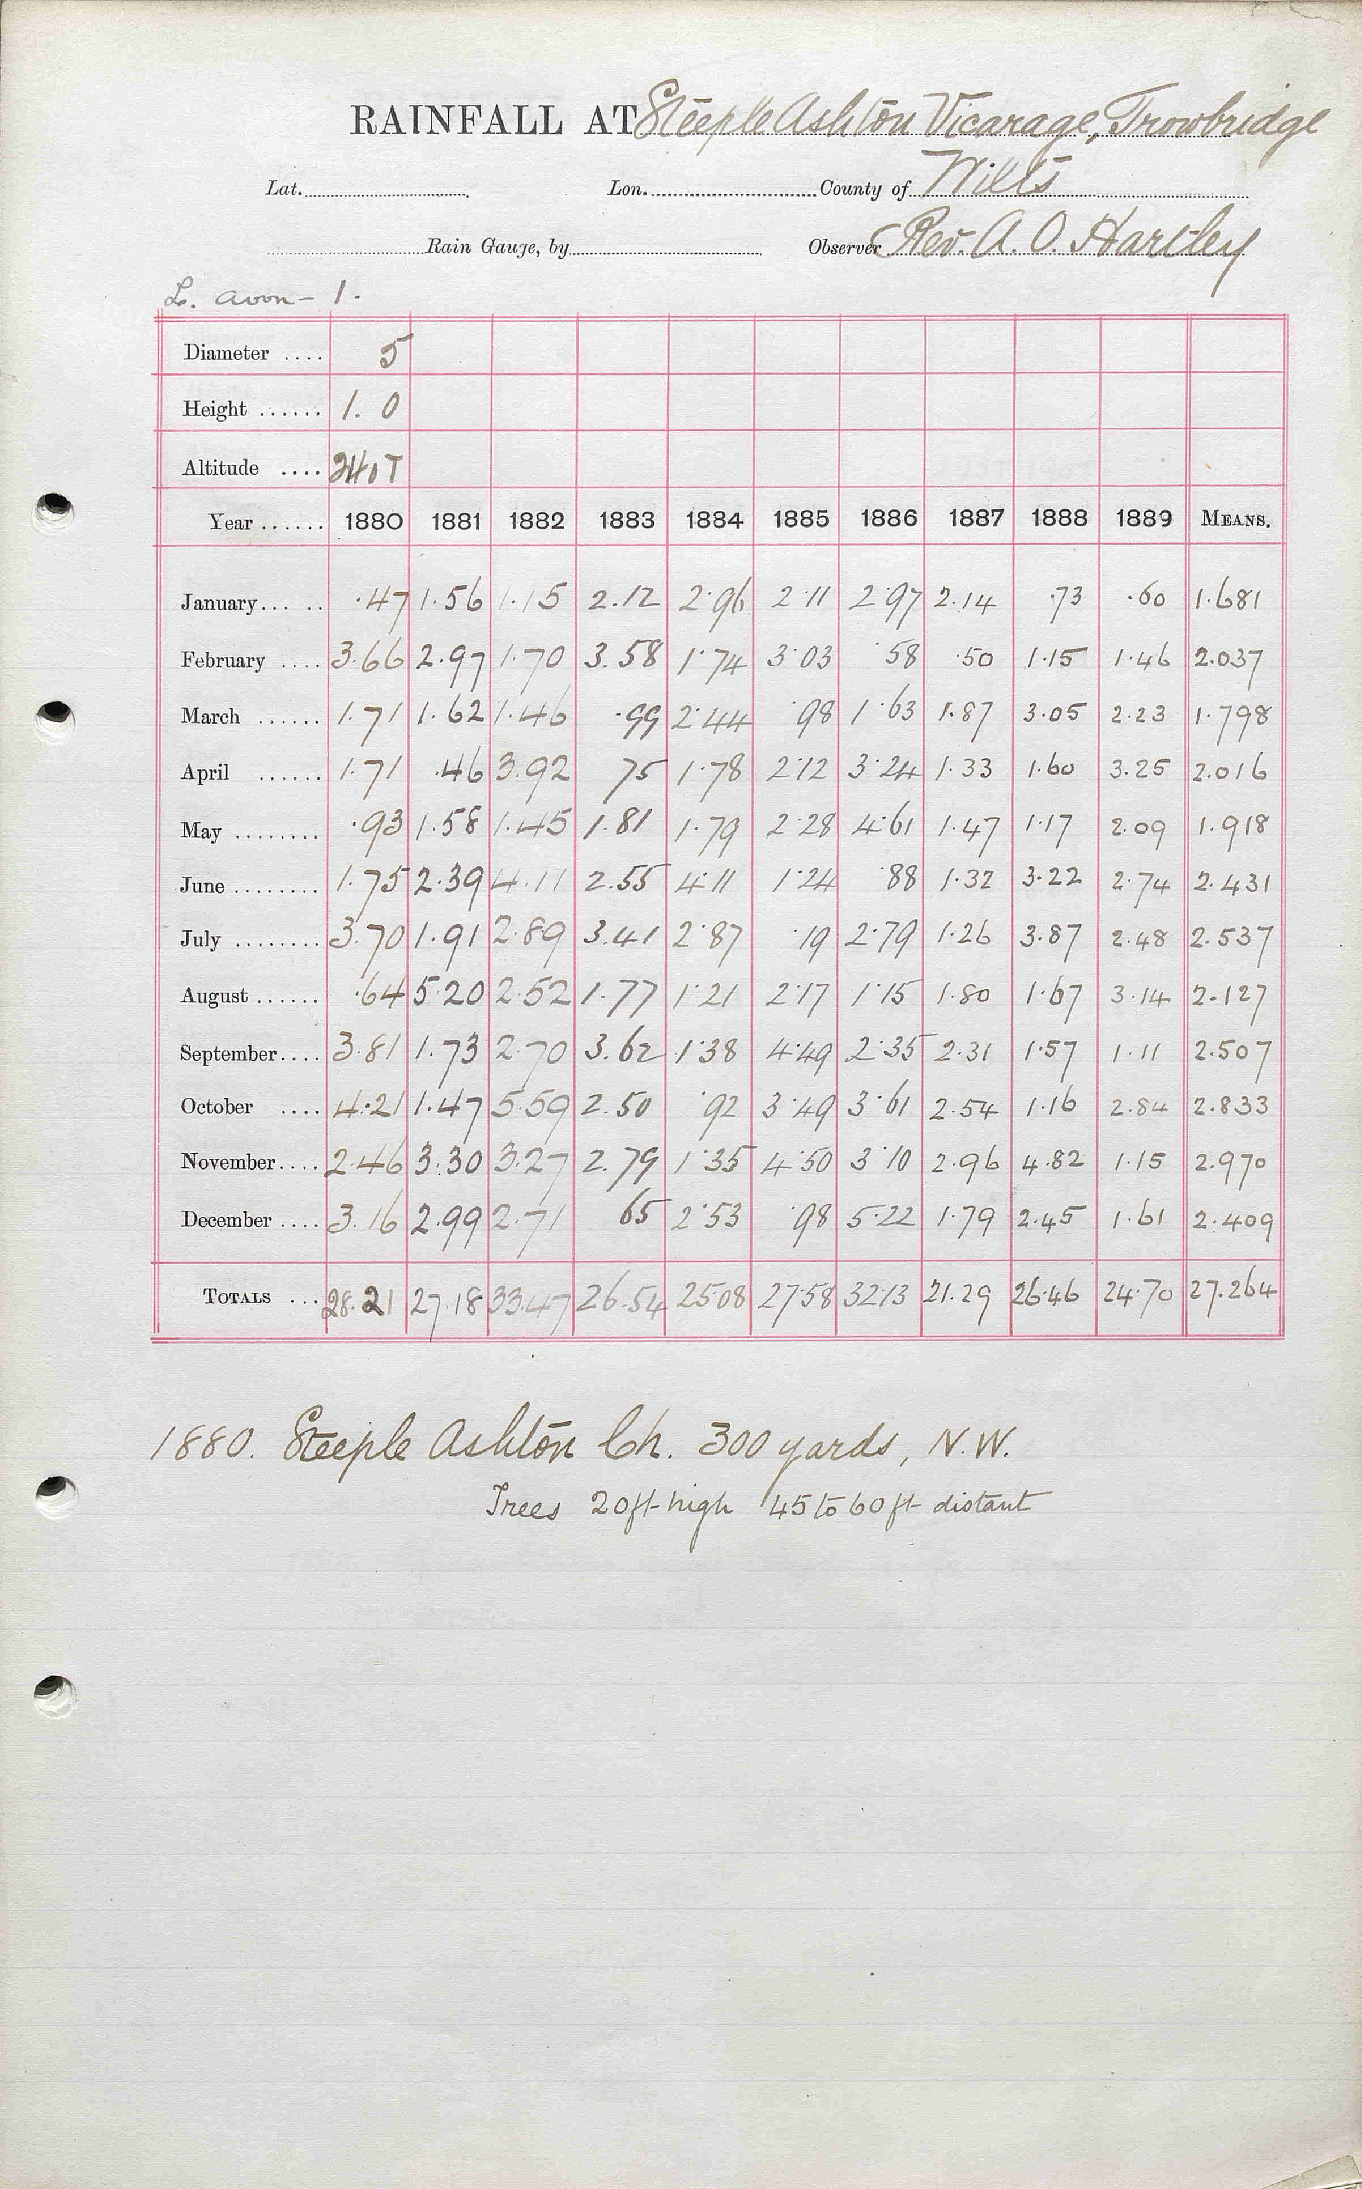 RAINFALL AT Steeple Ashton Vicarage, Trowbridge
Lat. Lon. County of Wilts
Rain Gauge, by Observer Rev. A. O. Hartley
L. avon - 1.
Diameter .... 5
Height ...... 1. 0
Altitude ....
Year ...... 1880 1881 1882 1883 1884 1885 1886 1887 1888 1889 MEANS.
January ... .. .47 1.56 1.15 2.12 2.96 2.11 2.97 2.14 .73 .60 1.681
February .... 3.66 2.97 1.70 3.58 1.74 3.03 .58 .50 1.15 1.46 2.037
March ...... 1.71 1.62 1.46 .99 2.44 .98 1.63 1.87 3.05 2.23 1.798
April ...... 1.71 .46 3.92 75 1.78 2.12 3.24 1.33 1.60 3.25 2.016
May ........ .93 1.58 1.45 1.81 1.79 2.28 4.61 1.47 1.17 2.09 1.918
June ........ 1.75 2.39 4.11 2.55 4.11 1.24 .88 1.32 3.22 2.74 2.431
July ........ 3.70 1.91 2.89 3.41 2.87 .19 2.79 1.26 3.87 2.48 2.537
August ...... .64 5.20 2.52 1.77 1.21 2.17 1.15 1.80 1.67 3.14 2.127
September .... 3.81 1.73 2.70 3.62 1.38 4.49 2.35 2.31 1.57 1.11 2.507
October .... 4.21 1.47 5.59 2.50 .92 3.49 3.61 2.54 1.16 2.84 2.833
November .... 2.46 3.30 3.27 2.79 1.35 4.50 3.10 2.96 4.82 1.15 2.970
December .... 3.16 2.99 2.71 65 2.53 .98 5.22 1.79 2.45 1.61 2.409
TOTALS ... 28.21 27.18 33.47 26.54 25.08 27.58 32.13 21.29 26.46 24.70 27.264
1880. Steeple Ashton Ch. 300 yards, N.W.
Trees 20 ft high 45 to 60 ft distant